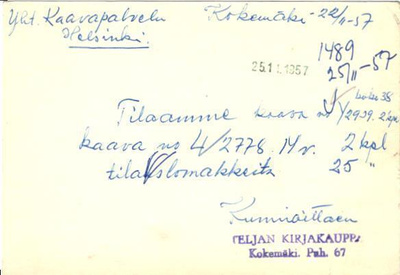 Yht. Kaavapalvelu Kokemäki - 22/11-57
Helsinki.
1489
25.11.1957 25/11-57
koko 38
Tilaamme kaava no 1/2939. 2 kpl
kaava no 4/2778. M v. 2 kpl
tilauslomakkeita 25 "
Kunnioittaen
TELJAN KIRJAKAUPPA
Kokemäki. Puh. 67